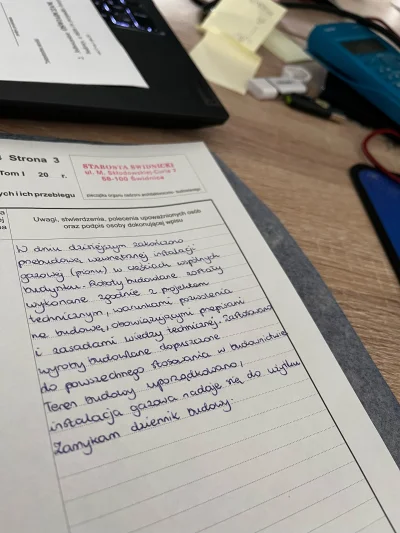 Strona 3
Tom I 20 r.
STAROSTA ŚWIDNICKI
ul. M. Skłodowskiej-Curie 7
58-100 Świdnica
ych i ich przebiegu
Uwagi, stwierdzenia, polecenia upoważnionych osób
oraz podpis osoby dokonującej wpisu
W dniu dzisiejszym zakończono
przebudowę wewnętrznej instalacji
gazowej (pionu) w częściach wspólnych
budynku. Roboty budowlane zostały
wykonane zgodnie z projektem
technicznym, warunkami pozwolenia
na budowę, obowiązującymi przepisami
i zasadami wiedzy technicznej. Zastosowano
wyroby budowlane dopuszczone
do powszechnego stosowania w budownictwie
Teren budowy uporządkowano,
instalacja gazowa nadaje się do użytku
Zamykam dziennik budowy.